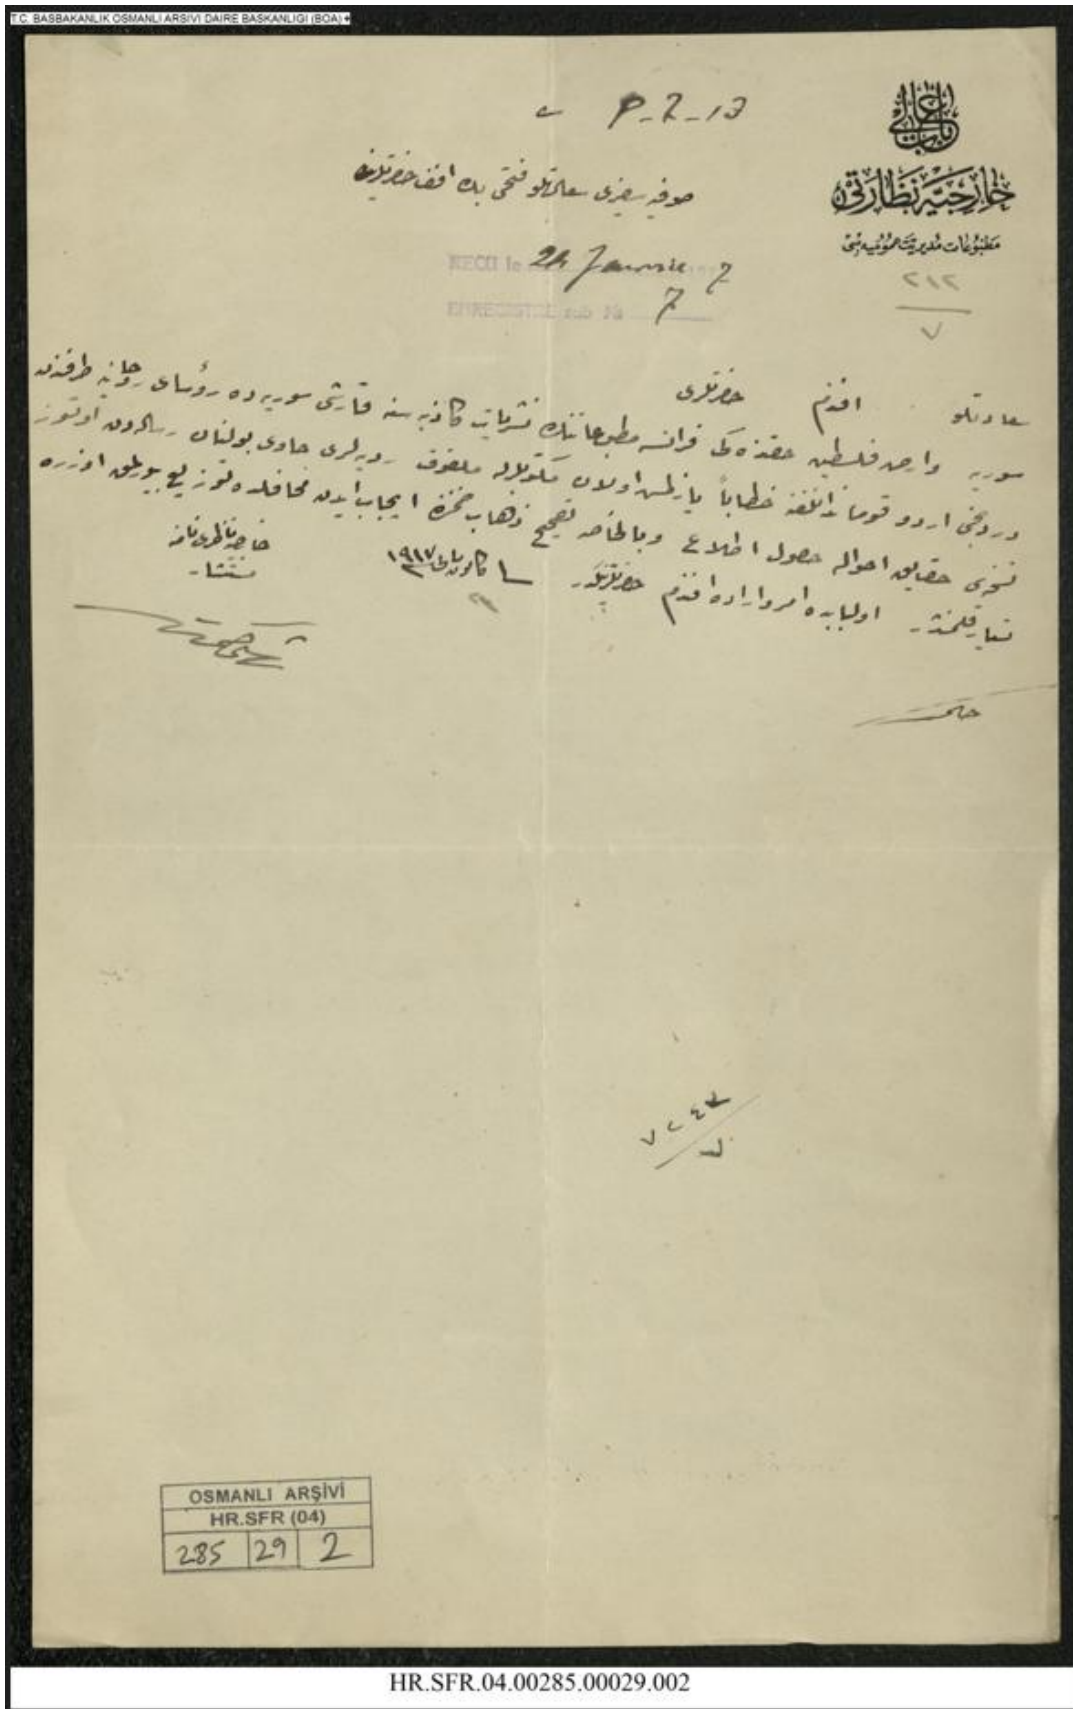 T.C. BASBAKANLIK OSMANLI ARSIVI DAIRE BASKANLIGI (BOA)
باب عالی
خارجیه نظارتی
مطبوعات مدیریت عمومیه سی
٢١٢
٧
صوفیه سفیری سعادتلو فتحی بك افندی حضرتلرینه
RECU le 24 Janvier 7
ENREGISTRE sub № 7
سعادتلو افندم حضرتلری
سوریه وارض فلسطین حقنده كی فرانسه مطبوعاتنك نشریات كاذبه سنه قارشی سوریه ده رؤسای روحانیه طرفندن
دردنجی اردو قوماندانلغنه خطاباً یازلمش اولان مكتوبلرله ملفوف ردیه لری حاوی بولنان رساله دن اوتوز
نسخه سی حقایق احواله حصول اطلاع وبالخاصه تصحیح ذهاب ضمننده ایجاب ایدن محافلده توزیع بیورلمق اوزره
تسیار قلنمشدر اولبابده امر واراده افندم حضرتلرینكدر كانون ثانی ١٩١٧
خارجیه ناظری نامنه
مستشار
حكمت
٧٢٤٣
OSMANLI ARŞİVİ
HR.SFR (04)
285 29 2
HR.SFR.04.00285.00029.002